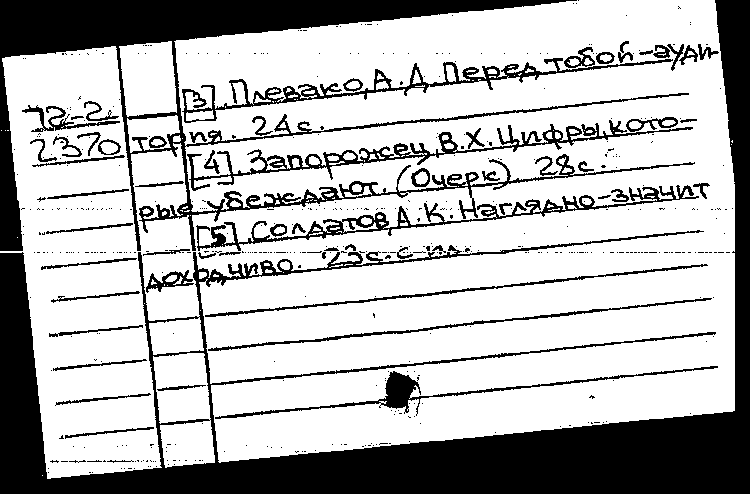 72-2
2370
[3]. Плевако, А.Д. Перед тобой - ауди-
тория. 24с.
[4]. Запорожец, В.Х. Цифры, кото-
рые убеждают. (Очерк). 28с.
[5]. Солдатов, А.К. Наглядно - значит
доходчиво. 23с. с ил.